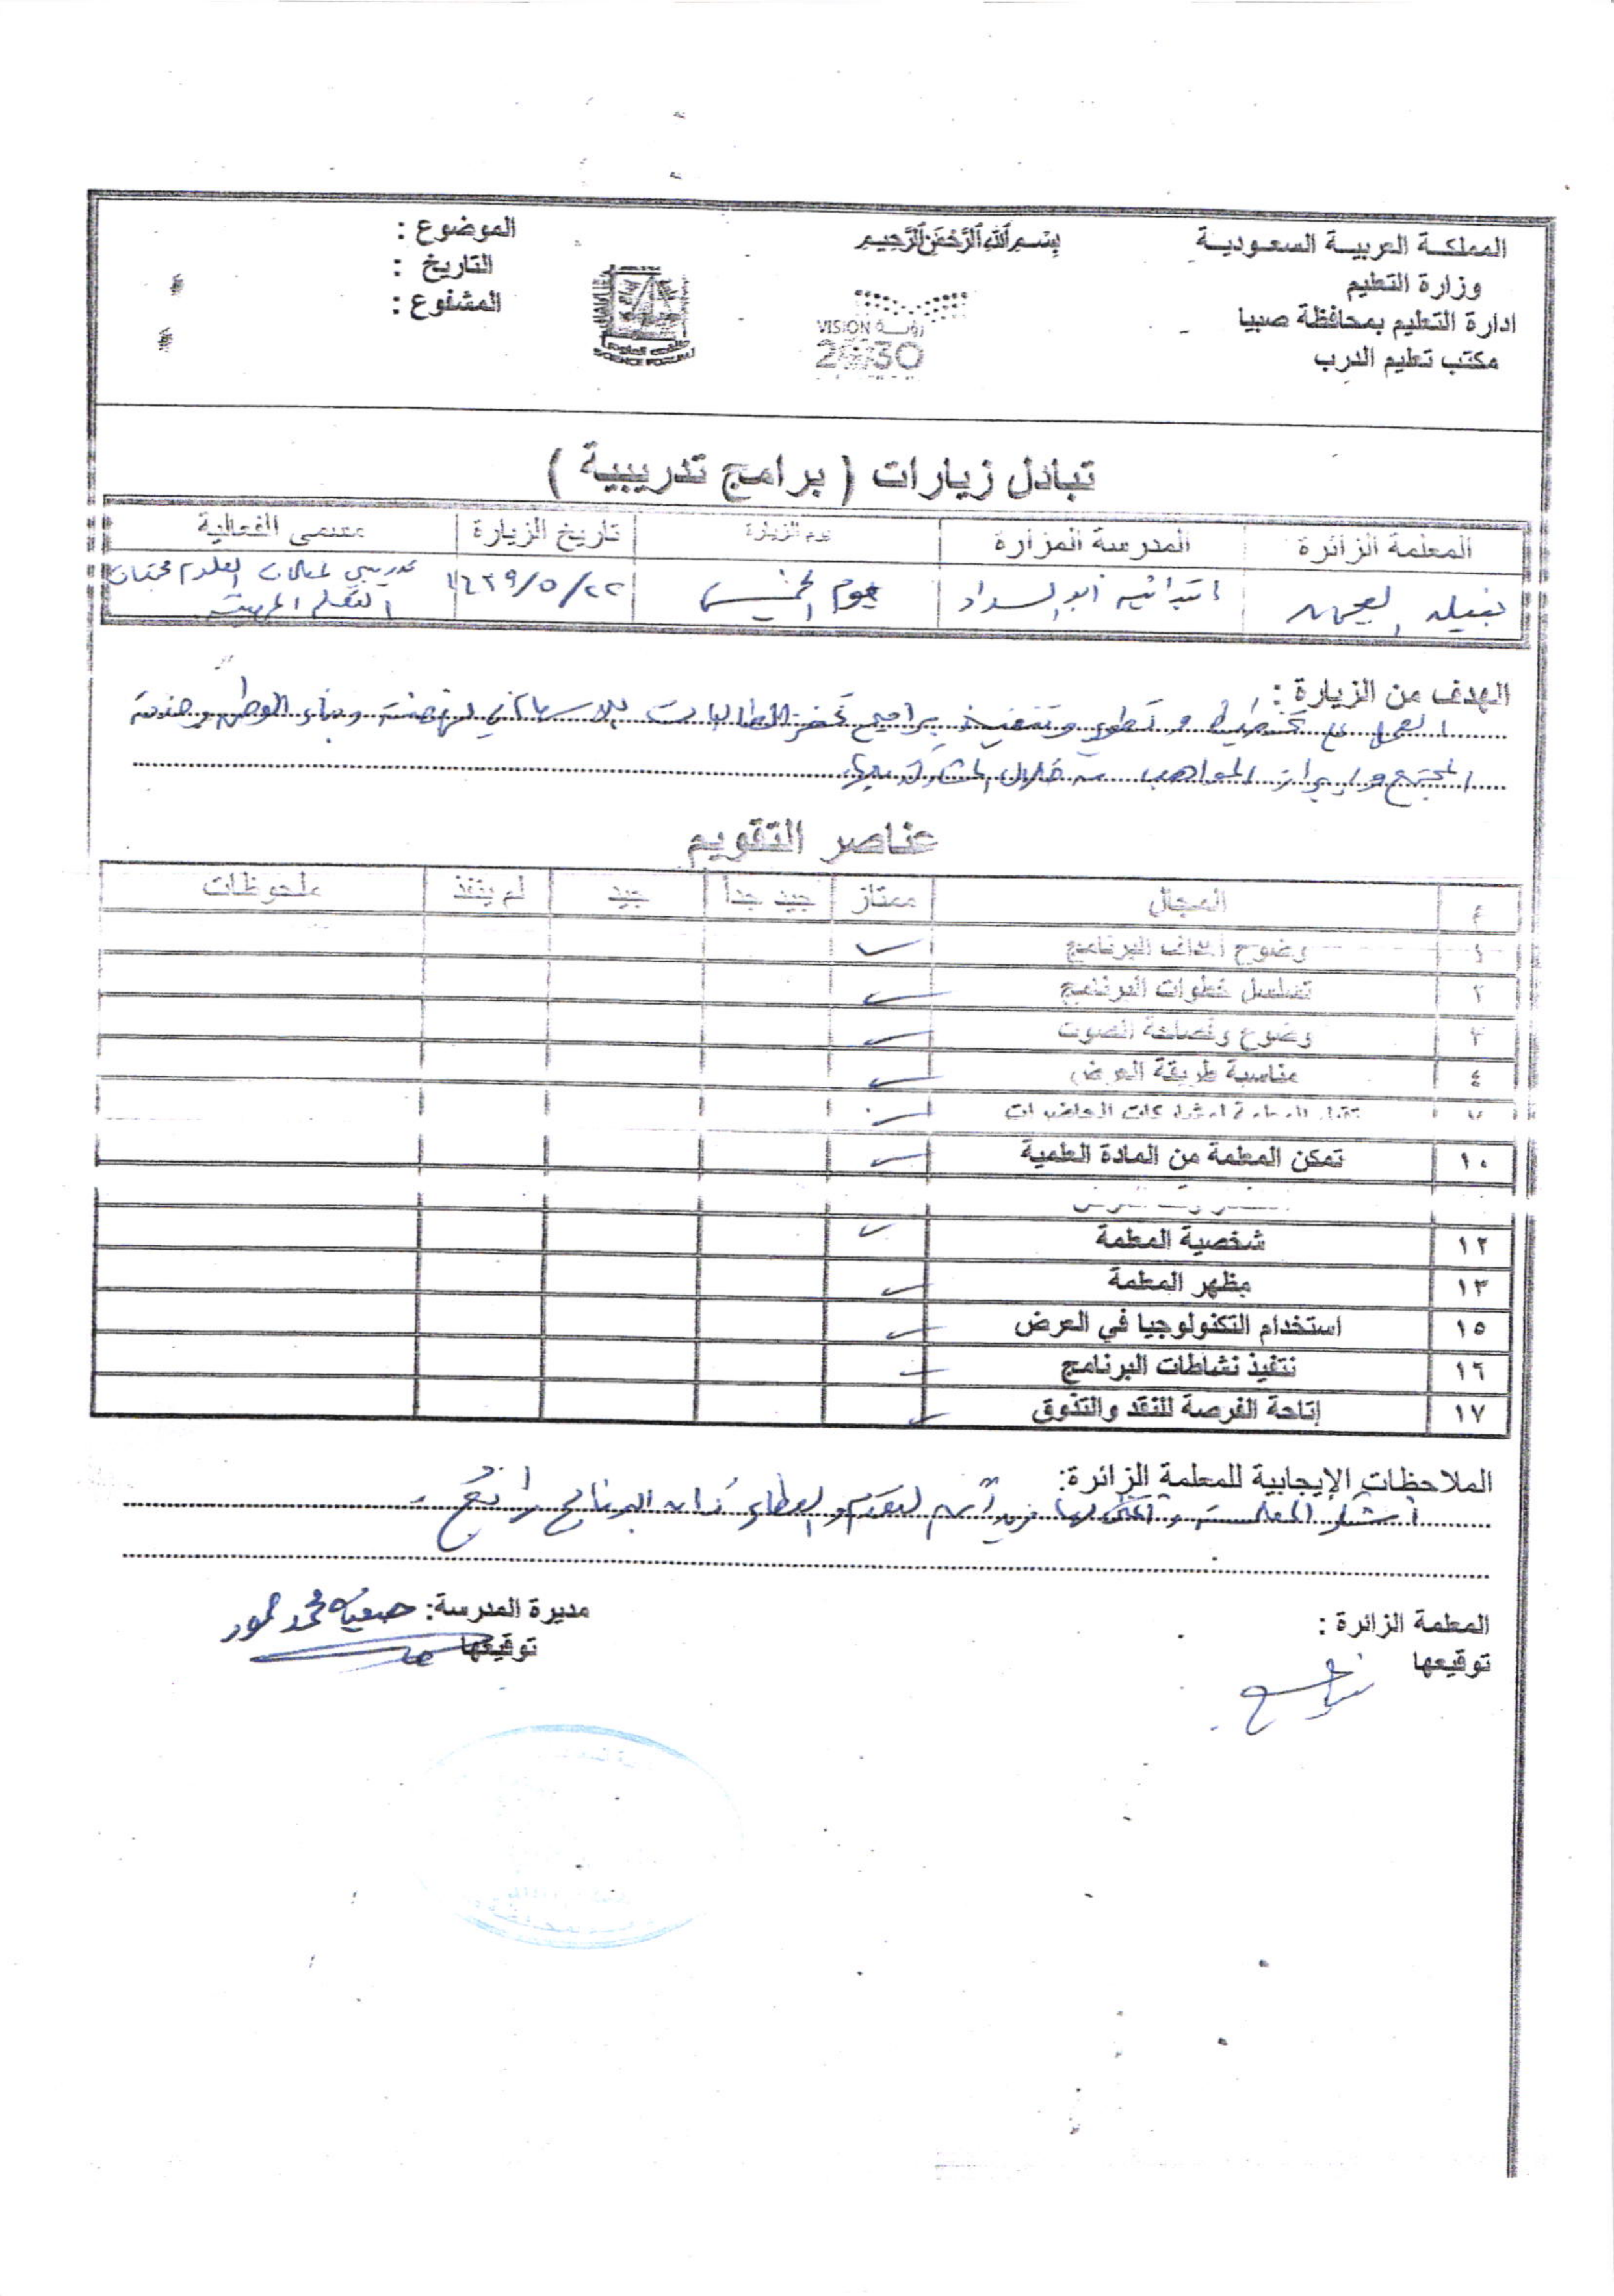 المملكة العربية السعودية
وزارة التعليم
ادارة التعليم بمحافظة صبيا
مكتب تعليم الدرب
بسم الله الرحمن الرحيم
VISION رؤيـــة
2030
SCIENCE FORUM
الموضوع :
التاريخ :
المشفوع :
تبادل زيارات ( برامج تدريبية )
المعلمة الزائرة المدرسة المزارة يوم الزيارة تاريخ الزيارة مسمى الفعالية
ابتدائية أبو السداد يوم الخميس ١٤٣٩/٥/٢٢ تدريبي لمعلمات العلوم مجتمعات
التعلم المهنية
الهدف من الزيارة :
العمل على تخطيط و تطوير وتنفيذ برامج تحفز الطالبات للاسهام في نهضة وبناء الوطن وخدمة
المجتمع وإبراز المواهب من خلال المشاركة
عناصر التقويم
م المجال ممتاز جيد جدا جيد لم ينفذ ملحوظات
١ وضوح أهداف البرنامج ✓
٢ تسلسل خطوات البرنامج ✓
٣ وضوح وفصاحة الصوت ✓
٤ مناسبة طريقة العرض ✓
✓
١٠ تمكن المعلمة من المادة العلمية ✓
١٢ شخصية المعلمة ✓
١٣ مظهر المعلمة ✓
١٥ استخدام التكنولوجيا في العرض ✓
١٦ تنفيذ نشاطات البرنامج ✓
١٧ إتاحة الفرصة للنقد والتذوق ✓
الملاحظات الإيجابية للمعلمة الزائرة:
أشكر المعلمة وأتمنى لها مزيداً من التقدم والعطاء البرنامج رائع
المعلمة الزائرة :
توقيعها
مديرة المدرسة: محمد
توقيعها